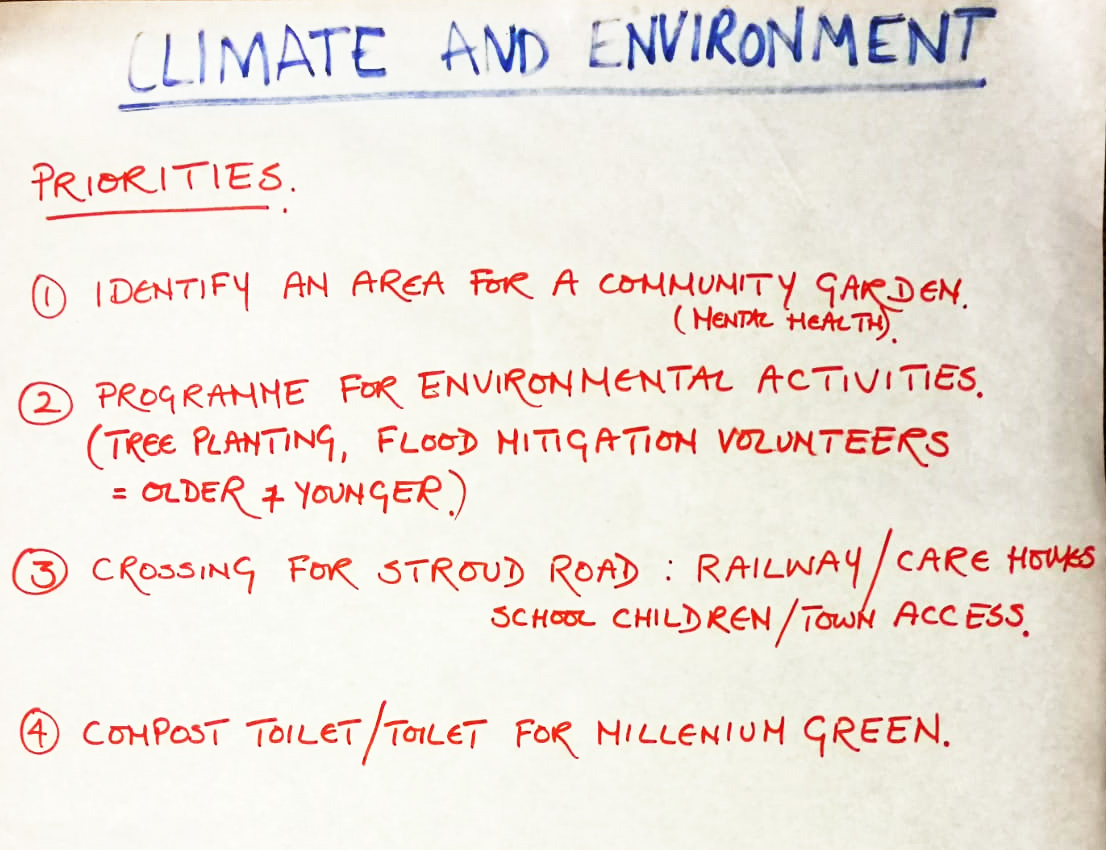 CLIMATE AND ENVIRONMENT
PRIORITIES.
① IDENTIFY AN AREA FOR A COMMUNITY GARDEN.
(MENTAL HEALTH).
② PROGRAMME FOR ENVIRONMENTAL ACTIVITIES.
(TREE PLANTING, FLOOD MITIGATION VOLUNTEERS
= OLDER + YOUNGER.)
③ CROSSING FOR STROUD ROAD : RAILWAY/CARE HOMES
SCHOOL CHILDREN/TOWN ACCESS.
④ COMPOST TOILET/TOILET FOR MILLENIUM GREEN.